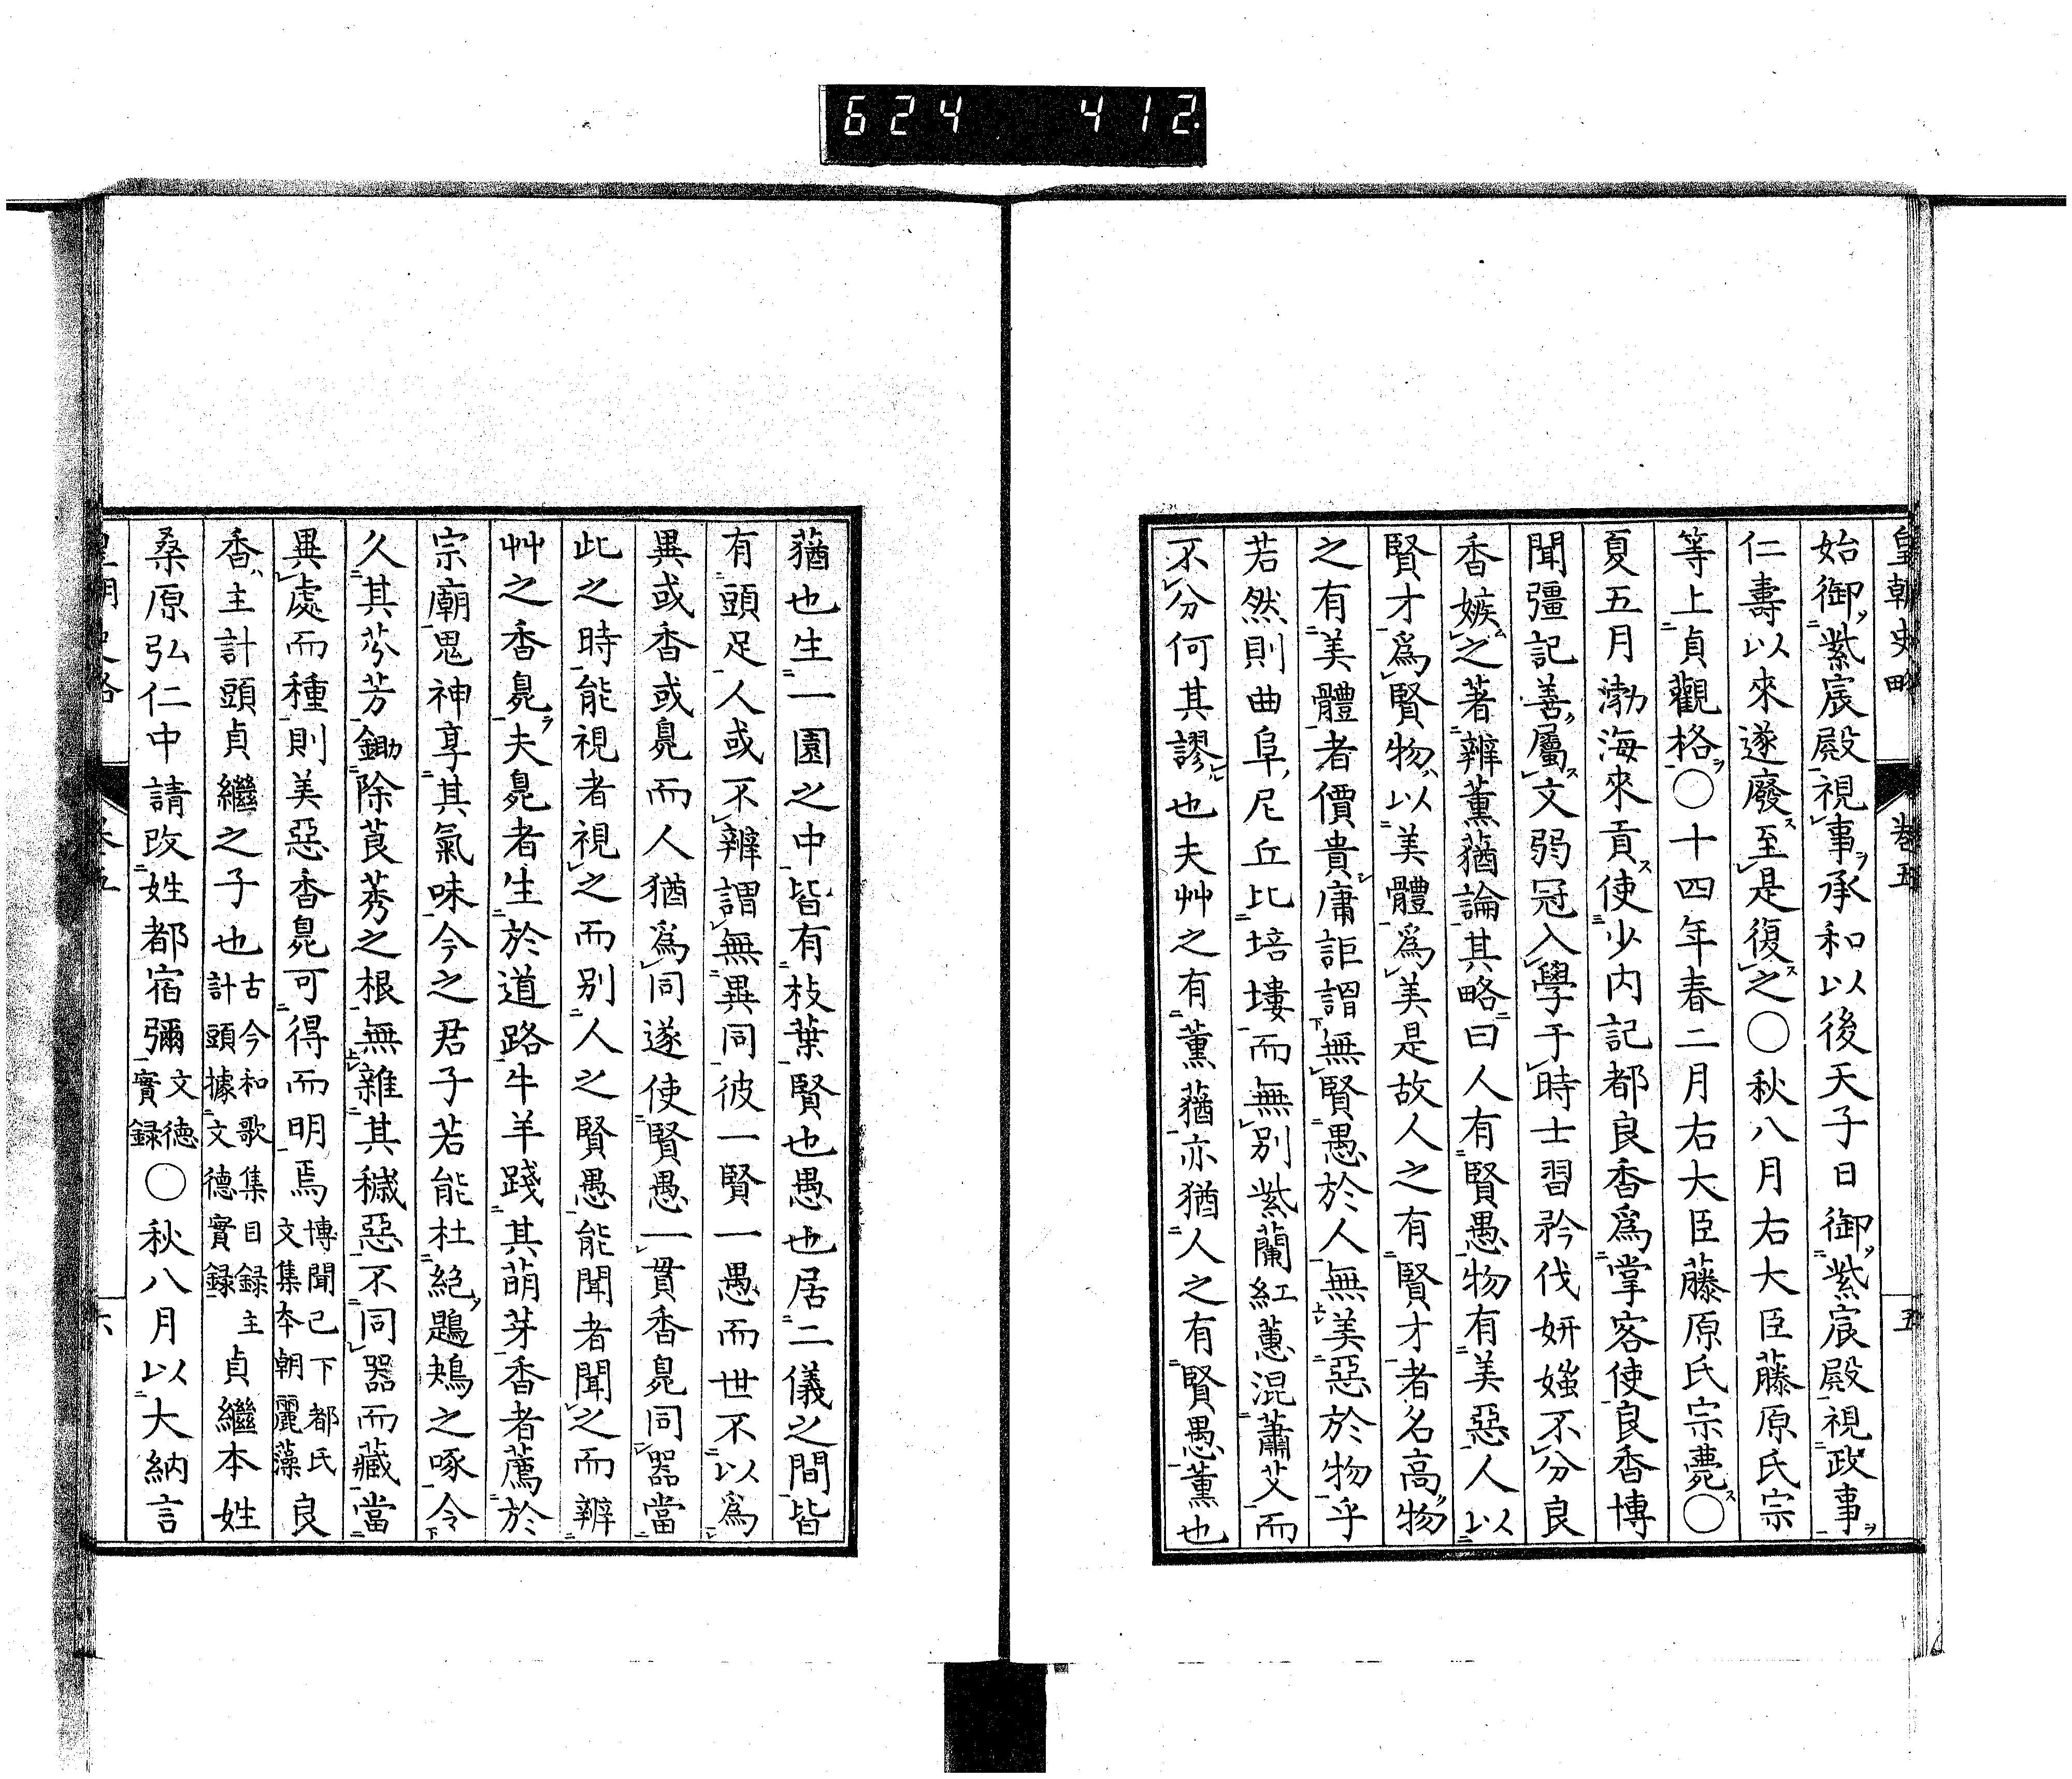 624 412
皇朝史略 卷五 五
始御紫宸殿視事承和以後天子日御紫宸殿視政事
仁壽以來遂廢至是復之〇秋八月右大臣藤原氏宗
等上貞觀格〇十四年春二月右大臣藤原氏宗薨〇
夏五月渤海來貢使少內記都良香爲掌客使良香博
聞彊記善屬文弱冠入學于時士習矜伐妍媸不分良
香嫉之著辨薰蕕論其略曰人有賢愚物有美惡人以
賢才爲賢物以美體爲美是故人之有賢才者名高物
之有美體者價貴庸詎謂無賢愚於人無美惡於物乎
若然則曲阜尼丘比培塿而無別紫蘭紅蕙混蕭艾而
不分何其謬也夫艸之有薰蕕亦猶人之有賢愚薰也
蕕也生一園之中皆有枝葉賢也愚也居二儀之間皆
有頭足人或不辨謂無異同彼一賢一愚而世不以爲
異或香或臭而人猶爲同遂使賢愚一貫香臭同器當
此之時能視者視之而別人之賢愚能聞者聞之而辨
艸之香臭夫臭者生於道路牛羊踐其萌芽香者薦於
宗廟鬼神享其氣味今之君子若能杜絕鶗鴂之啄令
久其芬芳鋤除莨莠之根無雜其穢惡不同器而藏當
異處而種則美惡香臭可得而明焉博聞已下都氏文集本朝麗藻良
香主計頭貞繼之子也古今和歌集目錄主計頭據文德實錄貞繼本姓
桑原弘仁中請改姓都宿彌文德實錄〇秋八月以大納言
皇朝史略 卷五 六